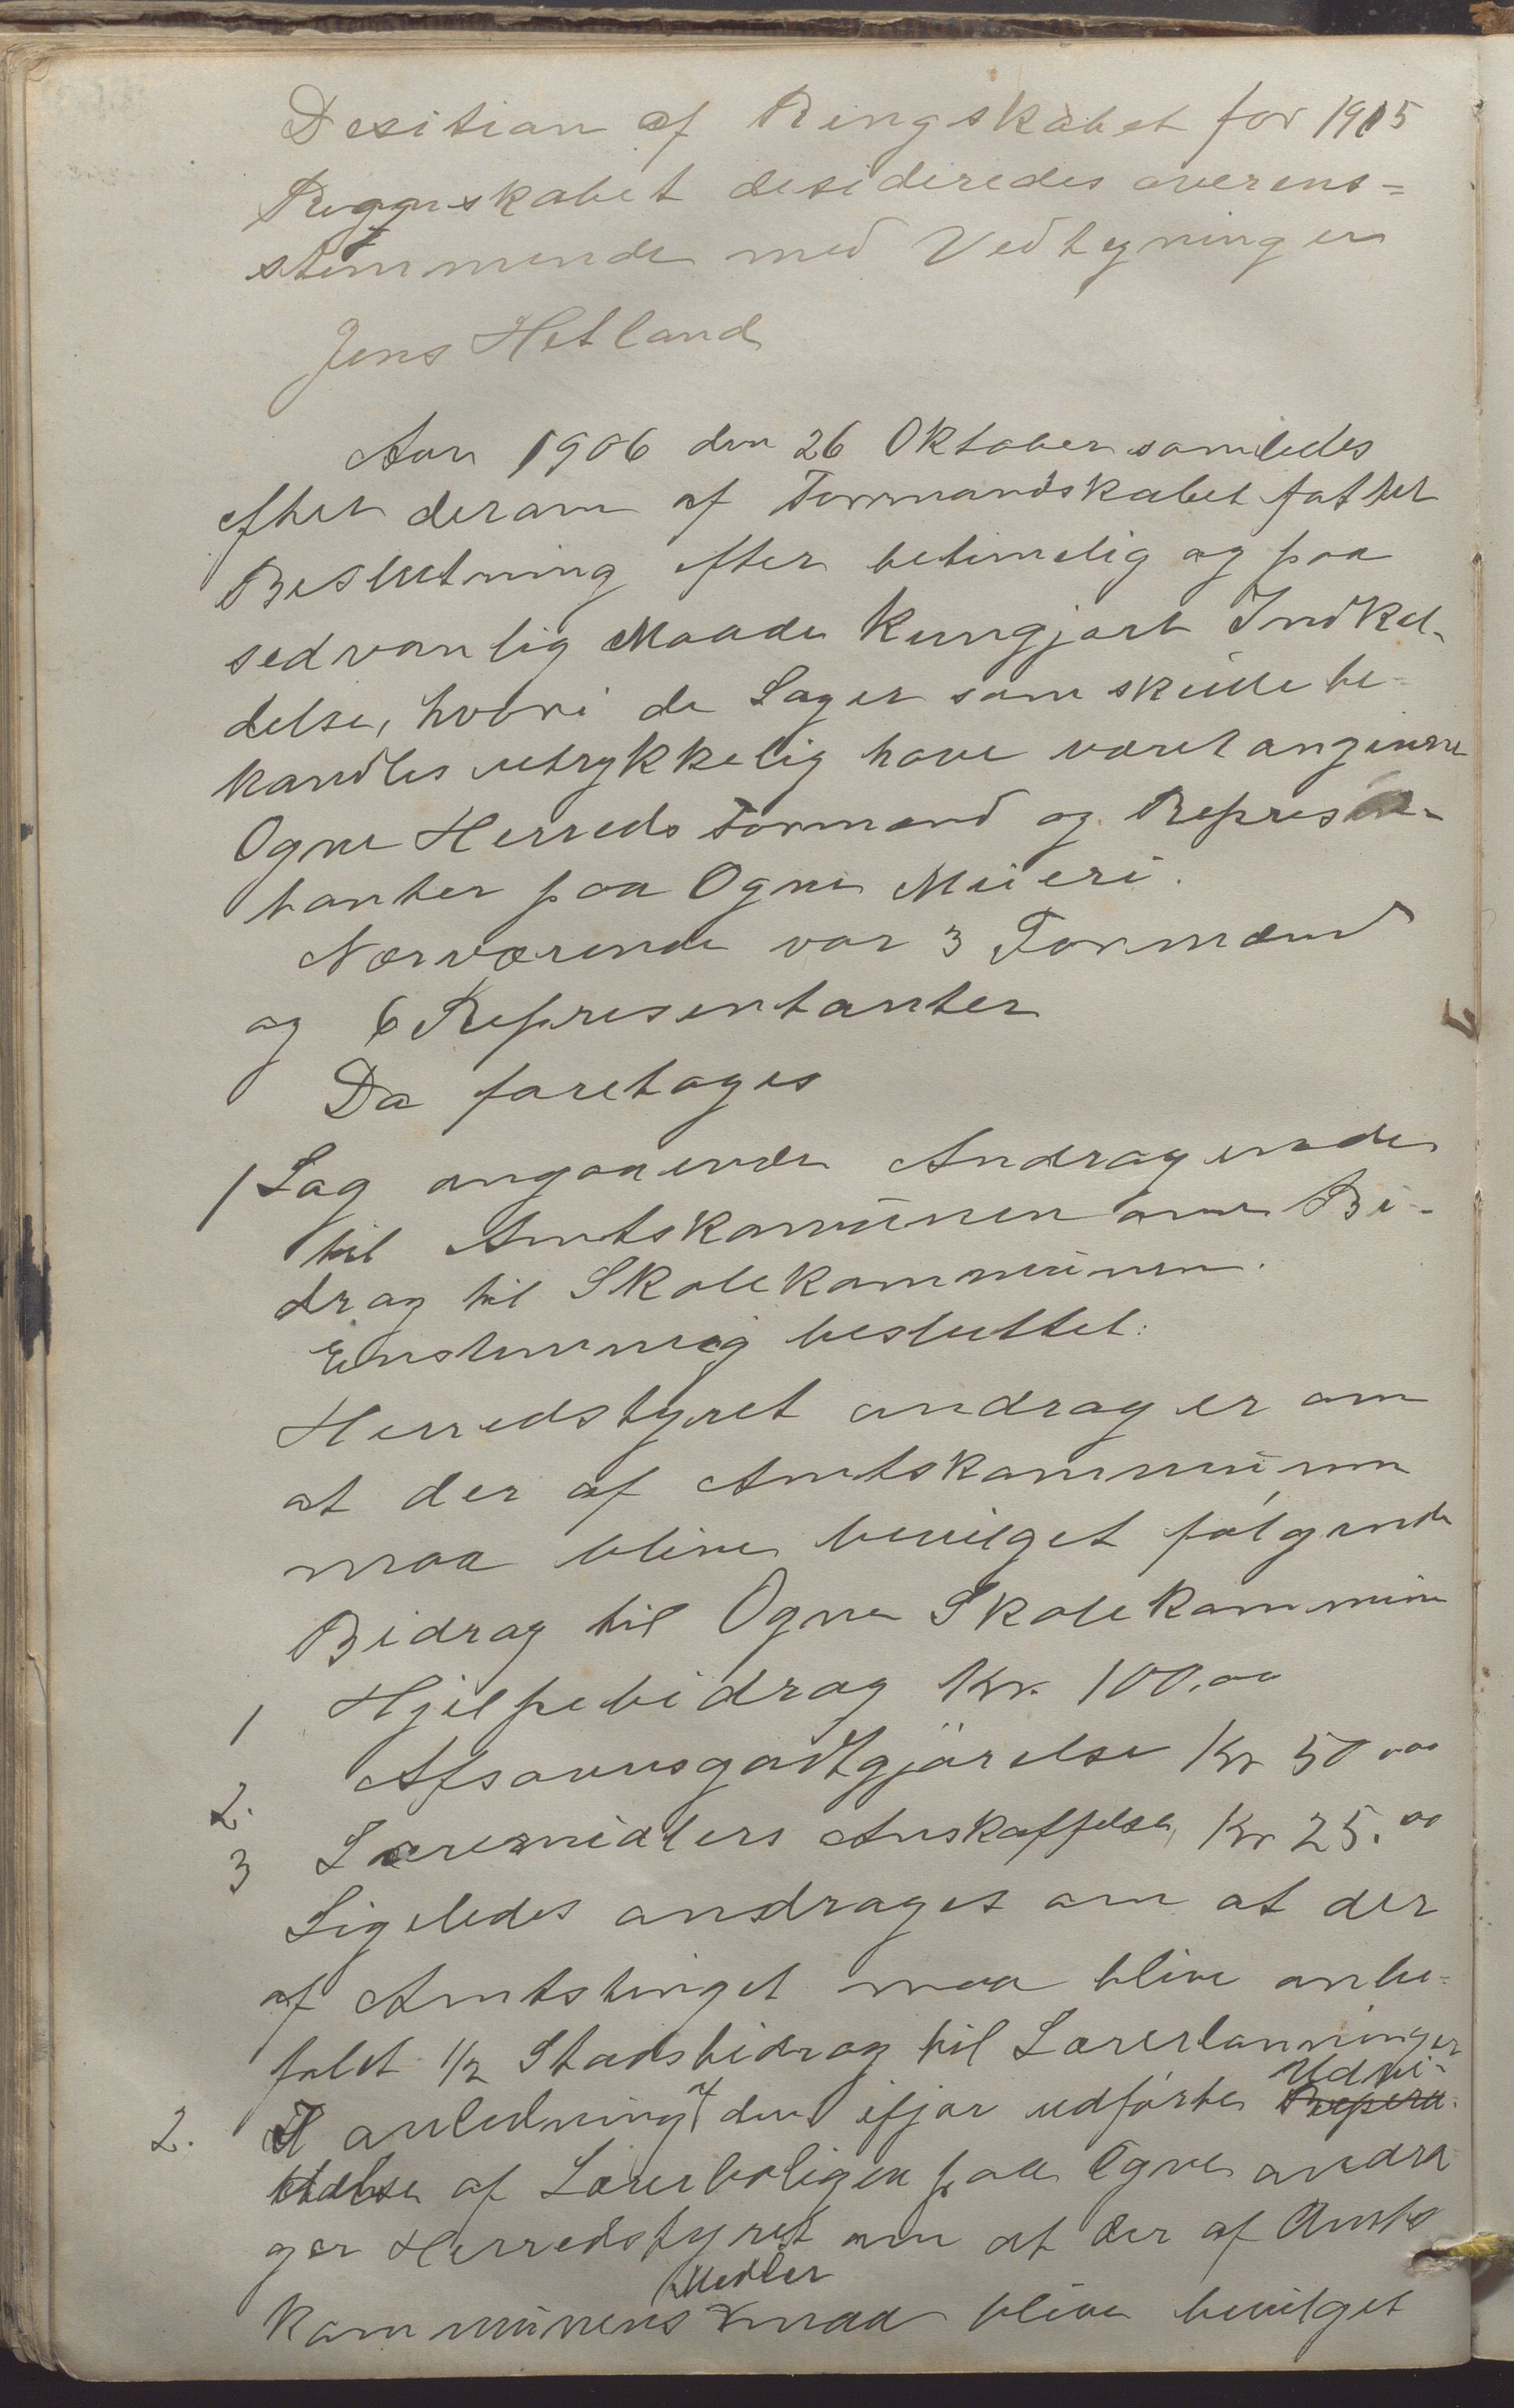 Desitian af Ringskabet for 1915
Reggnskabet desideredes averens=
stemmende med Vedtegninger
Jens Hetland
Aar 1906 den 26 Oktober samledes
efter derom af Formandskabet fattet
Beslutning efter betimelig og paa
sedvanlig Maade kungjort Indkal-
delse, hvori de Sager som skulle be-
handles uttrykkelig have været angivne
Ogne Herreds Formænd og Represen-
tanter paa Ogne Meieri.
Nærværende var 3 Formænd
og 6 Representanter
Da foretages
1 Sag angaaende Andragende
til Amtskomunen om Bi-
drag til Skolekommunen.
Enstemmig besluttet:
Herredstyret andrager om
at der af Amtskommunen
maa blive bevilget følgende
Bidrag til Ogne Skolekommune
1 Hjelpebidrag Kr. 100,00
2. Afsavnsgodtgjörelse Kr 50,00
3 Læremidlers Anskaffelse Kr 25.00
Ligeledes andrages om at der
af Amtstinget maa blive anbe-
falet 1/2 Stadsbidrag til Lærerlønninger
2. I anledning af den ifjor udførte Repera- Udvi-
delse af Lærerboligen paa Ogne andra
ger Herredstyret om at der af Amts
kommunens Medler maa blive bevilget